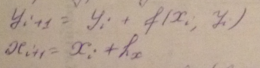 y_{i+1} = y_i + f(x_i, y_i)
x_{i+1} = x_i + h_x